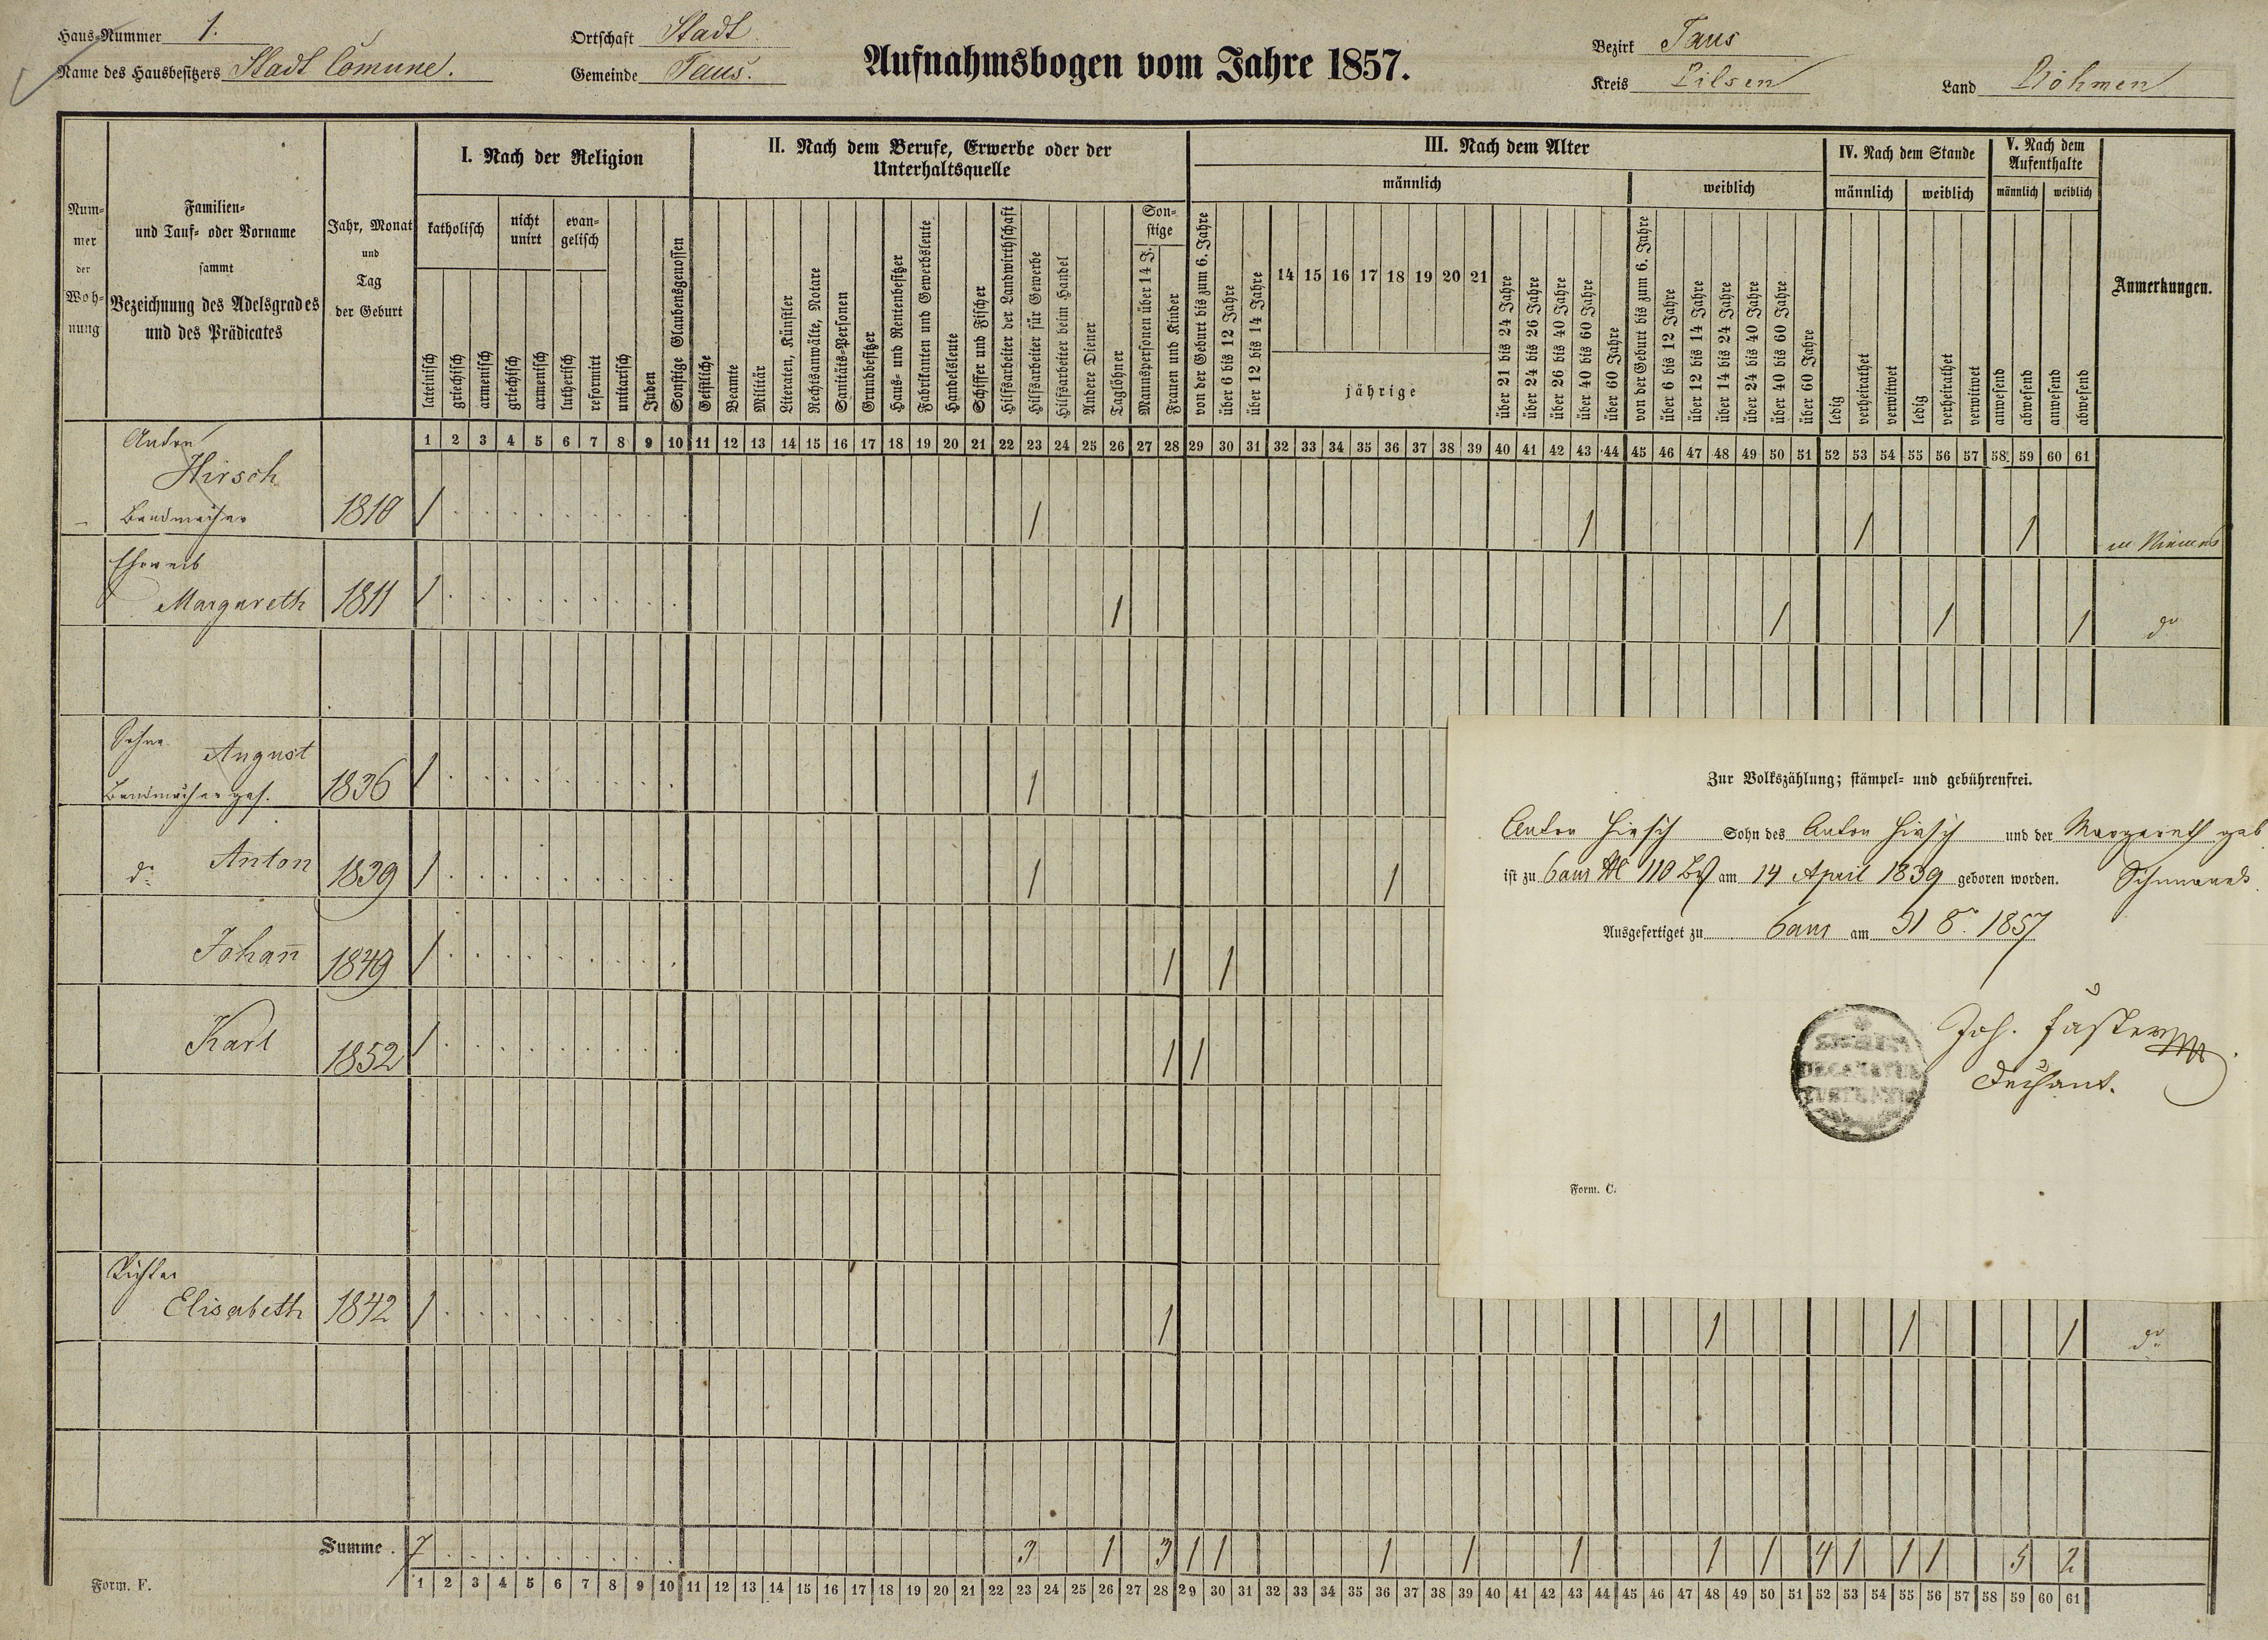 Haus-Nummer 1.
Name des Hausbesitzers Stadt Comune.
Ortschaft Stadt
Gemeinde Taus.
Aufnahmsbogen vom Jahre 1857.
Bezirk Taus
Kreis Pilsen
Land Böhmen
Num-
mer
der
Woh-
nung
Familien-
und Tauf- oder Vorname
sammt
Bezeichnung des Adelsgrades
und des Prädicates
Jahr, Monat
und
Tag
der Geburt
I. Nach der Religion
katholisch
nicht
unirt
evan-
gelisch
lateinisch
griechisch
armenisch
griechisch
armenisch
lutherisch
reformirt
unitarisch
Juden
Sonstige Glaubensgenossen
II. Nach dem Berufe, Erwerbe oder der
Unterhaltsquelle
Geistliche
Beamte
Militär
Literaten, Künstler
Rechtsanwälte, Notare
Sanitäts-Personen
Grundbesitzer
Haus- und Rentenbesitzer
Fabrikanten und Gewerbsleute
Handelsleute
Schiffer und Fischer
Hilfsarbeiter der Landwirthschaft
Hilfsarbeiter für Gewerbe
Hilfsarbeiter beim Handel
Andere Diener
Taglöhner
Son-
stige
Mannspersonen über 14 J.
Frauen und Kinder
III. Nach dem Alter
männlich
von der Geburt bis zum 6. Jahre
über 6 bis 12 Jahre
über 12 bis 14 Jahre
14 15 16 17 18 19 20 21
jährige
über 21 bis 24 Jahre
über 24 bis 26 Jahre
über 26 bis 40 Jahre
über 40 bis 60 Jahre
über 60 Jahre
weiblich
von der Geburt bis zum 6. Jahre
über 6 bis 12 Jahre
über 12 bis 14 Jahre
über 14 bis 24 Jahre
über 24 bis 40 Jahre
über 40 bis 60 Jahre
über 60 Jahre
IV. Nach dem Stande
männlich
weiblich
ledig
verheirathet
verwitwet
ledig
verheirathet
verwitwet
V. Nach dem
Aufenthalte
männlich
weiblich
anwesend
abwesend
anwesend
abwesend
Anmerkungen.
1 2 3 4 5 6 7 8 9 10 11 12 13 14 15 16 17 18 19 20 21 22 23 24 25 26 27 28 29 30 31 32 33 34 35 36 37 38 39 40 41 42 43 44 45 46 47 48 49 50 51 52 53 54 55 56 57 58 59 60 61
Anton
Hirsch
Bandmacher 1810 1 1 1 1 1
Eheweib
Margareth 1811 1 1 1 1 1 do
Söhne August
Bandmacherges. 1836 1 1
do Anton 1839 1 1 1
Johann̄ 1849 1 1 1
Karl 1852 1 1 1
Tochter
Elisabeth 1842 1 1 1 1 1 do
Summe . 7 3 1 3 1 1 1 1 1 1 1 4 1 1 1 5 2
1 2 3 4 5 6 7 8 9 10 11 12 13 14 15 16 17 18 19 20 21 22 23 24 25 26 27 28 29 30 31 32 33 34 35 36 37 38 39 40 41 42 43 44 45 46 47 48 49 50 51 52 53 54 55 56 57 58 59 60 61
Form. F.
Zur Volkszählung; stämpel- und gebührenfrei.
Anton Hirsch Sohn des Anton Hirsch und der Margareth geb.
ist zu Taus 110 am 14 April 1839 geboren worden.
Ausgefertiget zu Taus am 31 8. 1857
Joh. Faster
Dechant.
Form. C.